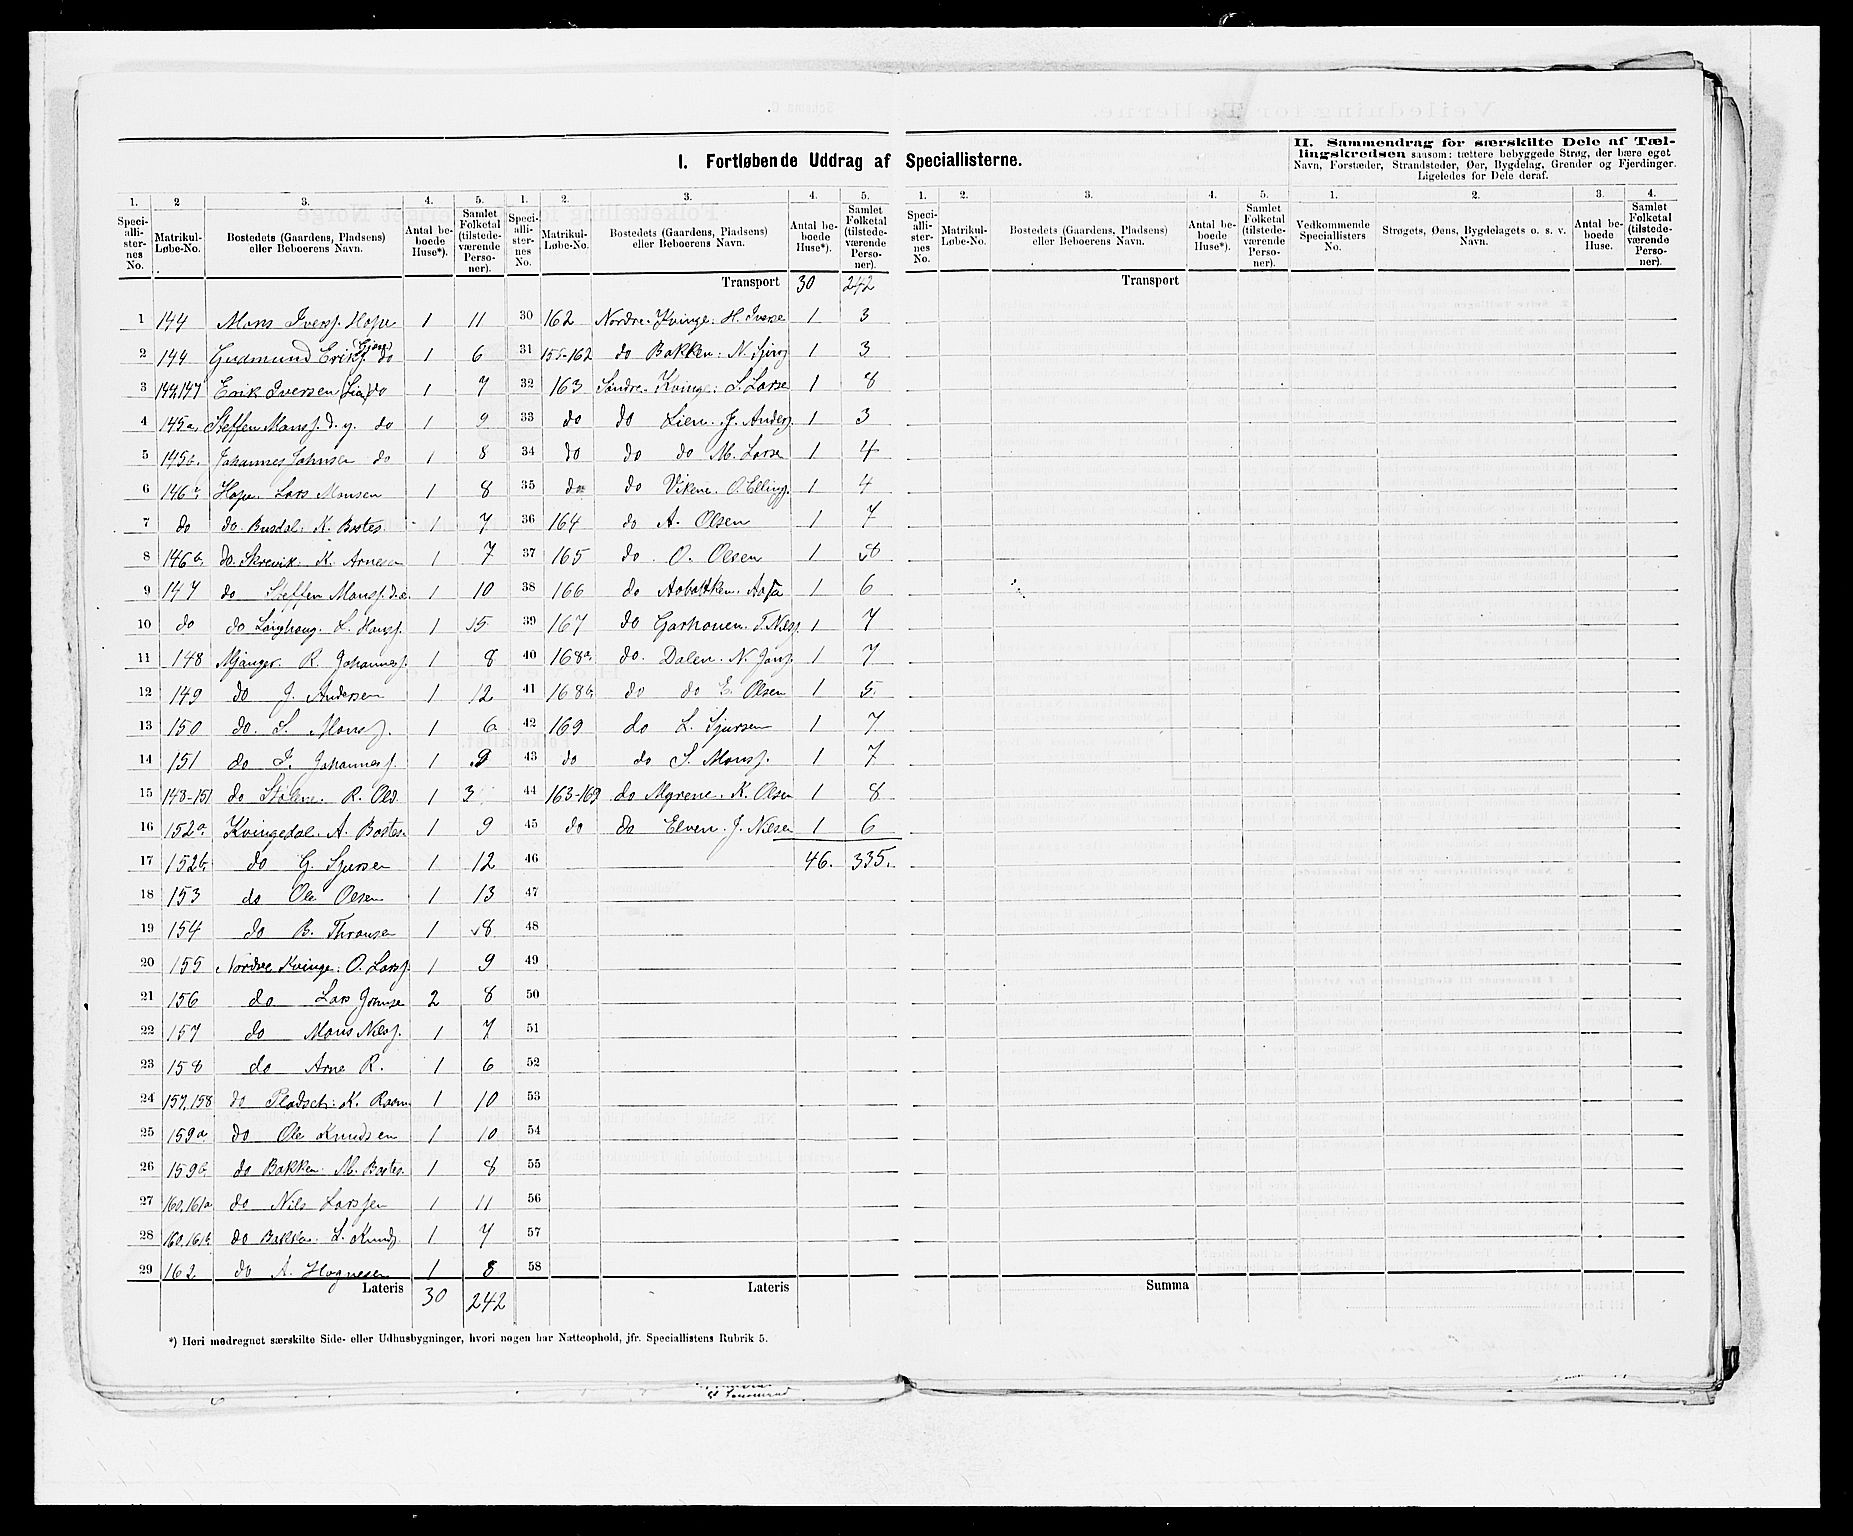 I. Fortløbende Uddrag af Speciallisterne.
II. Sammendrag for særskilte Dele af Tæl-
lingskredsen saasom: tættere bebyggede Strøg, der bære eget
Navn, Forstæder, Strandsteder, Øer, Bygdelag, Grender og Fjerdinger.
Ligeledes for Dele deraf.
1. 2 3. 4. 5. 1. 2. 3. 4. 5. 1. 2. 3. 4. 5. 1. 2. 3. 4.
Speciallisternes No. Matrikul-Løbe-No. Bostedets (Gaardens, Pladsens) eller Beboerens Navn. Antal beboede Huse*). Samlet Folketal (tilstedeværende Personer).
Speciallisternes No. Matrikul-Løbe-No. Bostedets (Gaardens, Pladsens) eller Beboerens Navn. Antal beboede Huse*). Samlet Folketal (tilstedeværende Personer).
Speciallisternes No. Matrikul-Løbe-No. Bostedets (Gaardens, Pladsens) eller Beboerens Navn. Antal beboede Huse*). Samlet Folketal (tilstedeværende Personer).
Vedkommende Speciallisters No. Strøgets, Øens, Bygdelagets o. s. v. Navn. Antal beboede Huse. Samlet Folketal (tilstedeværende Personer).
1 144 Mons Iversf. Hope 1 11
2 144 Gudmund Eriks. do 1 6
3 144,147 Erik Iversen (Lia) do 1 7
4 145a, Steffen Monsf. d. y. do 1 9
5 145b. Johannes Johnsen do 1 8
6 146a Hope. Lars Monsen 1 8
7 do do. Busdal: K. Bertes. 1 7
8 146b, do. Skrevik: K. Arnesen 1 7
9 147 do Steffen Monsf. d.æ. 1 10
10 do do Langhaug. L. Hansf. 1 5
11 148 Mjanger. R. Johannesf. 1 8
12 149 do J. Andersen 1 12
13 150 do. S. Monsf. 1 6
14 151 do I. Johannesf. 1 9
15 148-151 do Stølen. R. Old. 1 3
16 152a. Kvingedal. A. Bertes. 1 9
17 152b. do G. Sjursen 1 12
18 153 do Ole Olsen 1 13
19 154 do B. Thronsen 1 8
20 155 Nordre Kvinge: O. Larsf. 1 9
21 156 do Lars Jornse 2 8
22 157 do Mons Nilsf. 1 7
23 158 do Arne R. 1 6
24 157,158 do Pladsen: K. Rasm. 1 10
25 159a do Ole Knudsen 1 10
26 159b. do Bakken. M. Bertes. 1 8
27 160,161a do Nils Larssen 1 11
28 160,161b do Bakken. L. Knuds. 1 7
29 162 do A. Hognesen 1 8
Lateris 30 242
Transport 30 242
30 162 Nordre Kvinge: H. Iverse 1 3
31 155-162 do Bakken: N. 1 3
32 163 Søndre Kvinge: S. Larse 1 8
33 do do Lien. J. Anders. 1 3
34 do do do M. Larsen 1 4
35 do do Vikene. O. Ellings. 1 4
36 164 do A. Olsen 1 7
37 165 do O. Olsen 1 8
38 166 do 1 6
39 167 do Garhouen. T. Nilsf. 1 7
40 168a. do. Dalen. N. Jonsf. 1 7
41 168b. do do E. Olsen 1 5.
42 169 do L. Sjursen 1 7
43 do do S. Monsf. 1 7
44 163-169 do Myrene. K. Olsen 1 8
45 do do Elven. J. Nilsen 1 6
46 46. 335.
47
48
49
50
51
52
53
54
55
56
57
58
Lateris
Transport
Summa
*) Heri medregnet særskilte Side- eller Udhusbygninger, hvori nogen har Natteophold, jfr. Speciallistens Rubrik 5.